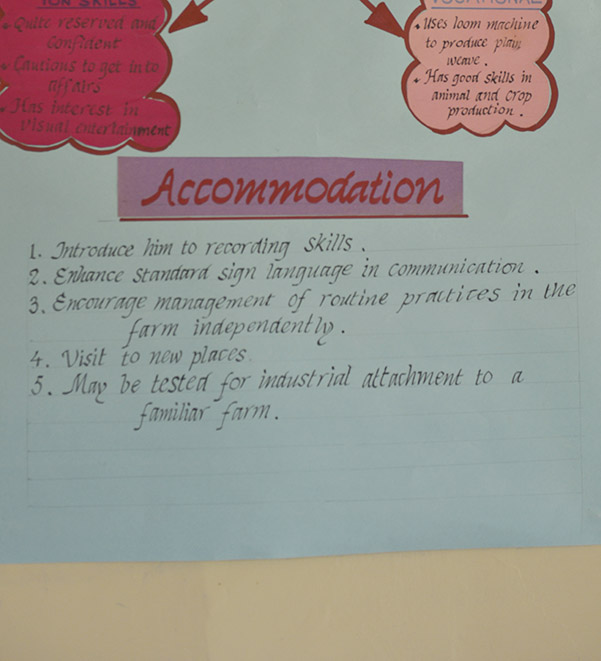 ION SKILLS
• Quite reserved and
confident
• Cautious to get into
affairs
• Has interest in
visual entertainment
VOCATIONAL
• Uses loom machine
to produce plain
weave.
• Has good skills in
animal and crop
production.
Accommodation
1. Introduce him to recording skills.
2. Enhance standard sign language in communication.
3. Encourage management of routine practices in the
farm independently.
4. Visit to new places.
5. May be tested for industrial attachment to a
familiar farm.